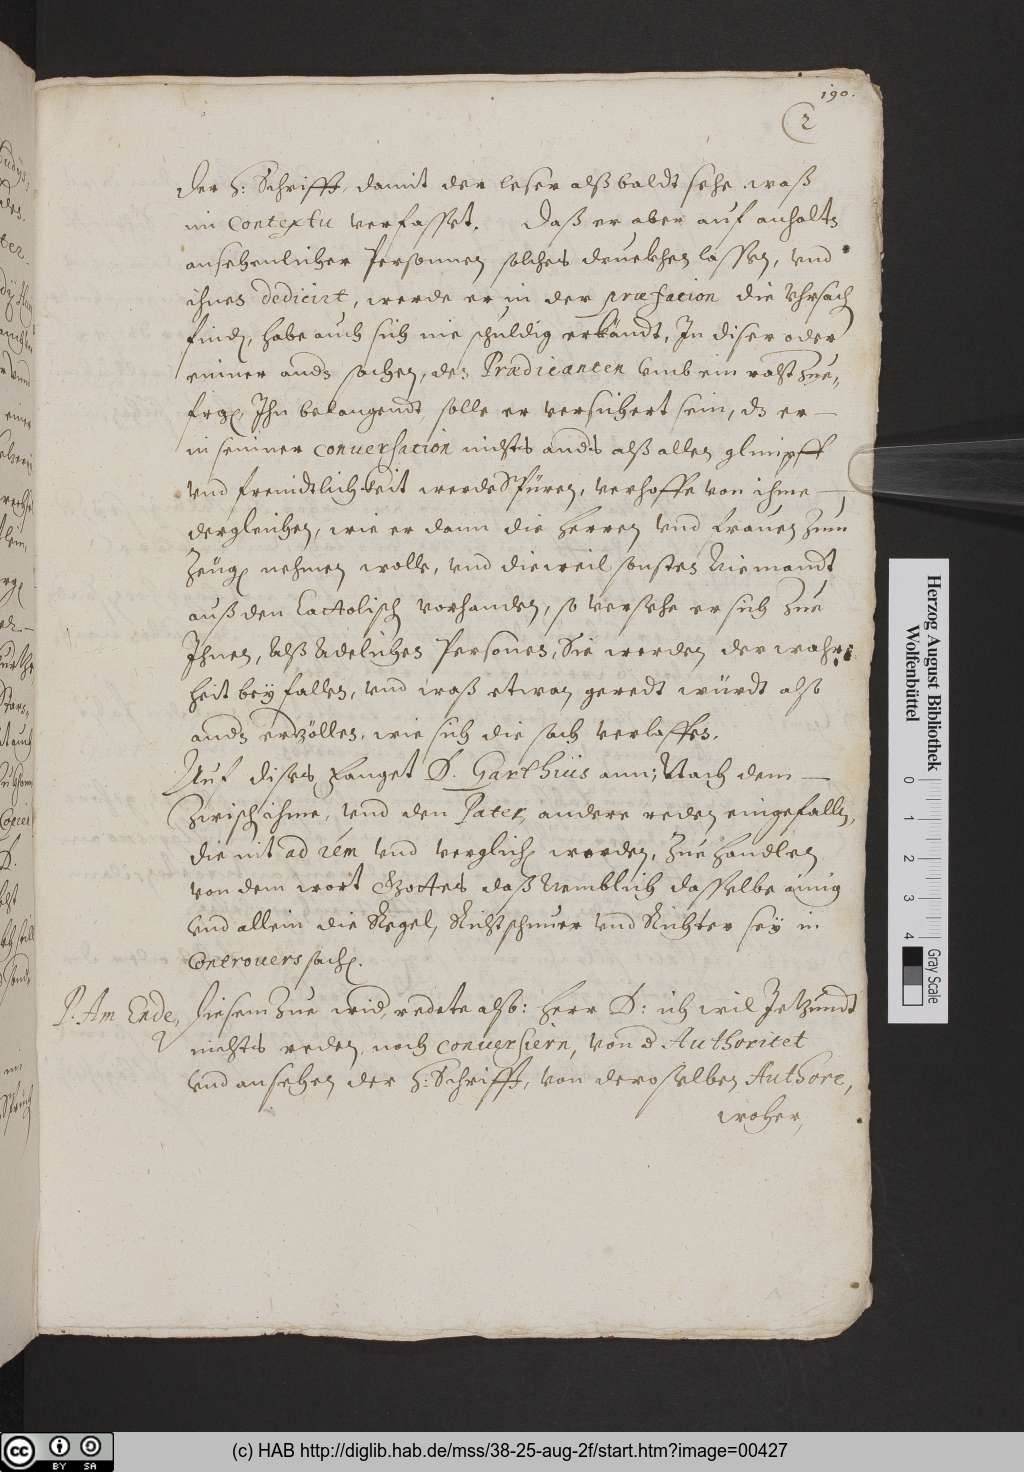 190.
2
der H: Schrifft, damit der leser alßbaldt sehe waß
im Contextu verfasset. Daß er aber auf anhalten
ansehenlicher Personnen solches druckhen lassen, vnd
ihnen dedicirt, werde er in der præfacion die Vhrsach
finden, habe auch sich nie schuldig erkandt, In diser oder
eininer andn sachen, den Prædicanten vmb ein rast zue,
fragen, Ihn belangendt, solle er versichert sein, dz er
in seiner conuersation nichts anders alß allen glimpff
vnd freundtlichkeit werde Spüren, verhoffe von ihme
dergleichen, wie er dann die Herren vnd frauen zum
Zeugen nehmen wolle, vnd dieweil sonsten Niemandt
auß den Cactolischen vorhanden, so versehe er sich zue
Ihnen, Alß Adelichen Personen, Sie werden der wahr:
heit bey fallen, vnd waß etwan geredt würdt also
andn erzöllen, wie sich die sach verlassen.
Auf dises fanget D. Garthius ann; Nach dem
zwischen ihme, vnd den Pater, andere reden eingefallen,
die nit ad rem vnd verglichen worden, zue handlen
von dem wort Gottes daß Nemblich dasselbe ainig
vnd allein die Regel, Richtschnuer vnd Richter sey in
Controuers sachen.
P. Am Ende, diesem zue wider, redete also: Herr D: ich wil Jetzundt
nichts reden noch conuersiern, von der Authoritet
vnd ansehen der H: Schrifft, von deroselben Authore,
woher,
Herzog August Bibliothek
Wolfenbüttel
0 1 2 3 4
Gray Scale
cc BY SA
(c) HAB http://diglib.hab.de/mss/38-25-aug-2f/start.htm?image=00427